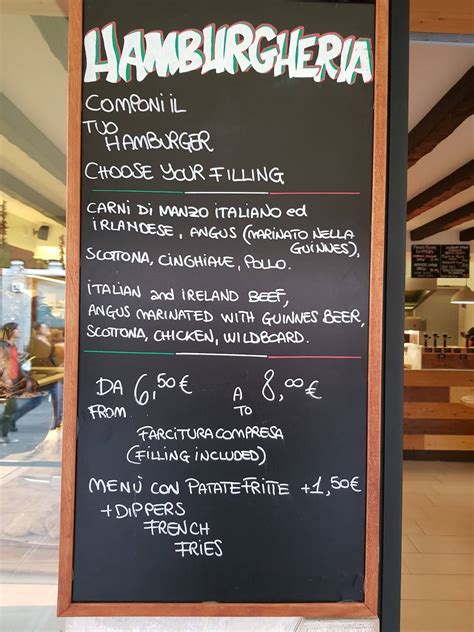 HAMBURGHERIA
COMPONI IL
TUO
HAMBURGER
CHOOSE YOUR FILLING
CARNI DI MANZO ITALIANO ed
IRLANDESE, ANGUS (MARINATO NELLA
GUINNES),
SCOTTONA, CINGHIALE, POLLO.
ITALIAN and IRELAND BEEF,
ANGUS MARINATED WITH GUINNES BEER,
SCOTTONA, CHICKEN, WILDBOARD.
DA 6,50€ A 8,00€
FROM TO
FARCITURA COMPRESA
(FILLING INCLUDED)
MENÙ CON PATATE FRITTE +1,50€
+DIPPERS
FRENCH
FRIES